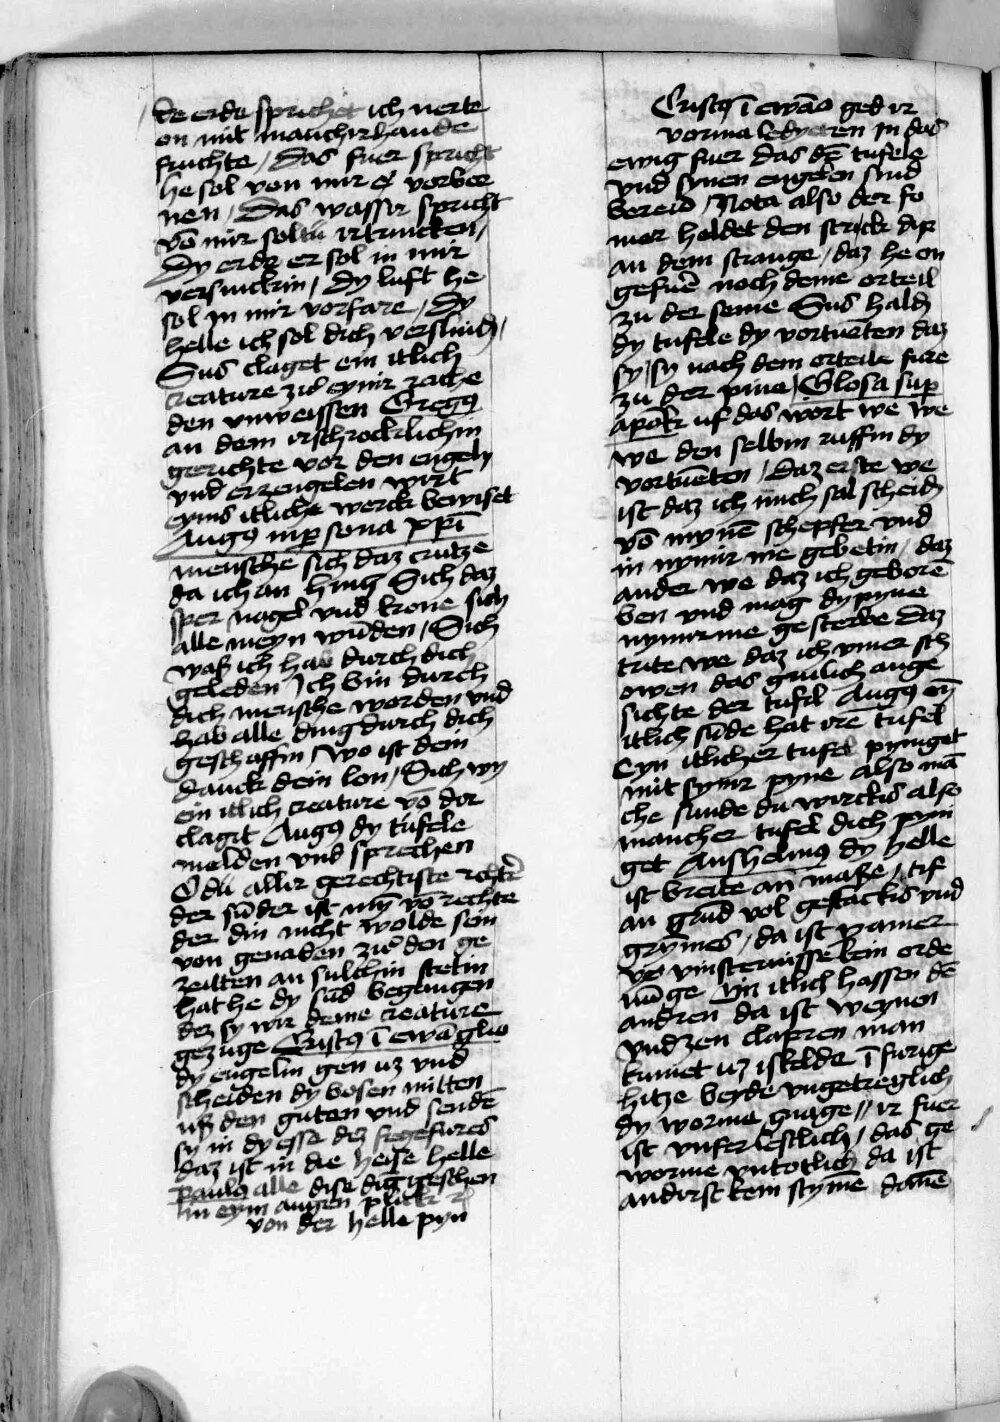 de erde sprichet ich nerte
on mit manchirhande
fruchte / Das fuer spricht
he sol von mir vorber
nen / Das wassir spricht
võ mir soltu irtrincken /
Dy erde er sol in mir
versinckin / Dy luft he
sol in mir vorfare / Dy
helle ich sol dich verslindẽ /
Sus claget ein itlich
creature zu eynir rache
den unweissen Gregꝰ
an dem irschrocklichin
gerichte vor den engeln
und erzengelen wirt
eyns itliche werck bewiset
Augꝰ in ꝑsona xp̃i
mensche sich daz crutze
da ich an hing Sich daz
sper nagel und krone sich
alle meyn wũden / Sich
waß ich hab durch dich
geleden Ich bin durch
dich mensche worden und
hab alle ding durch dich
geschaffin / Wo ist dein
danck dein lon / Sich wy
ein itlich creature võ dir
clagit Augꝰ dy tufele
melden und sprechen
O du allir gerechtiste richtᷣ
der sũder ist myn võ rechte
der din nicht wolde sein
von genaden zu den ge
zeitten an sulchin stetin
hat he dy sũd begangen
dez sy wir deine creature
gezuge Cristꝰ ĩ ewãglio
dy engelin gen uz und
scheiden dy bosen mitten
uß den guten und sendẽ
sy in dy esse dez fegefures
daz ist in die heise helle
Paulꝰ alle dise dĩg geschen
in eym augen plick
von der helle pyn
Cristꝰ ĩ ewão ged ir
vormaledyeten in das
ewig fuer das dẽ tufele
und synen engelen sind
bereid / Nota also der fo
mer heldet den strick
an dem strange / daz he en
gefuẽ noch deme orteil
zu der seine Sus haldẽ
dy tufele dy vortuẽten daz
sy sy nach dem orteile fure
zu der pine / Glosa suꝑ
apok uf das wort we we
we den selbin ruffin dy
vortuẽten / Daz erste we
ist daz ich mich sal scheidẽ
võ mynẽ schepfer und
in nymir me gebetin / daz
ander we daz ich geborẽ
ben und mag dy pyne
nymirme gesterbe Daz
trite we daz ich ymer sch
owen das grulich ange
sichte der tufil Augꝰ eyn
itlich sũde hat irẽ tufel
Eyn itlicher tufel pyniget
mit synir pyne also mã
che sunde du wirckis also
mancher tufel dich pyni
get Anshelmꝰ dy helle
ist breite an maße / tif
an grũd vol gestanckis und
grymes / da ist yamer
võ vinsternisse kein orde
nũge Ein itlich hassen dẽ
andren da ist weynen
und zen clapren man
kumet uz iskelde ĩ furige
hitze beyde ungetreglich
dy worme gnage // ir fuer
ist unfer lestlich / das ge
worme untotlich da ist
andirst kein stymẽ dañe